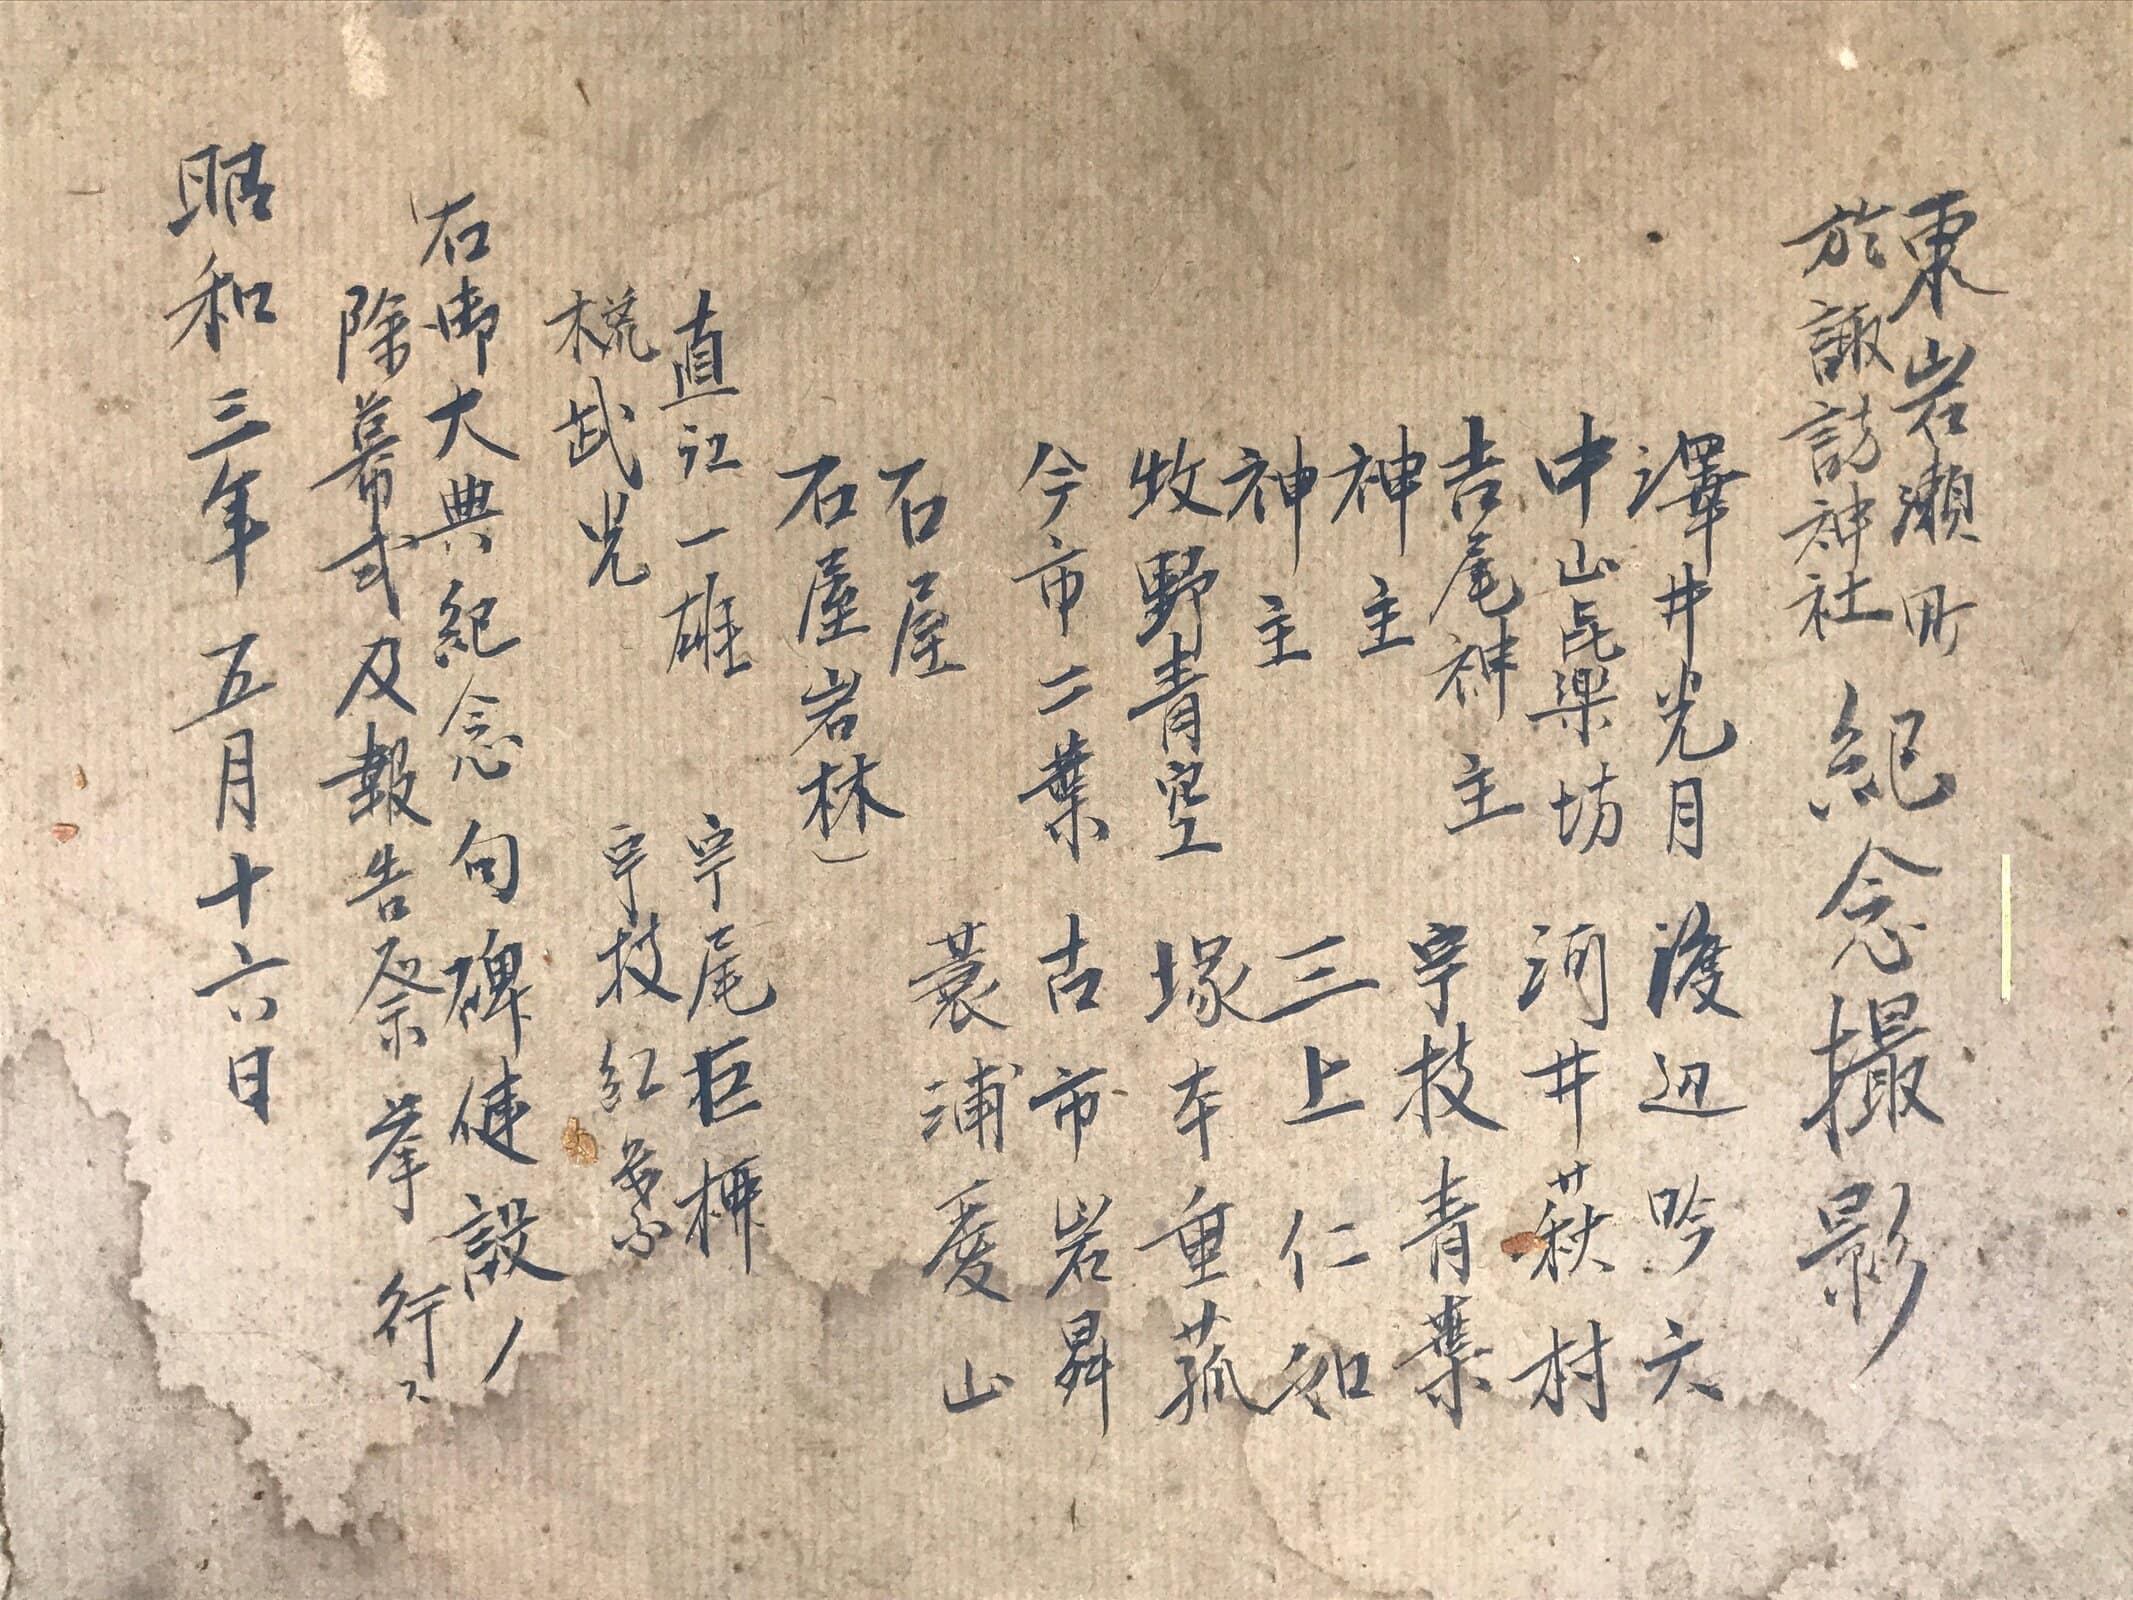 東岩瀬町
於諏訪神社
紀念撮影
澤井光月
中山昆楽坊
吉尾神主
神主
神主
牧野青空
今市二葉
石屋
石屋岩林
渡辺吟六
河井萩村
宇枝青葉
三上仁和
塚本重菰
古市岩昇
蓑浦愛山
直江一雄
武光
宇尾巨
宇枝紅葉
右御大典紀念句碑健設ノ
除幕式及報告祭挙行ス
昭和三年五月十六日